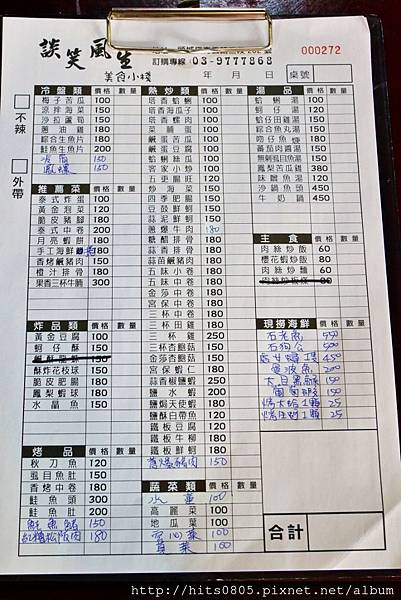 談笑風生
美食小棧
訂購專線 03-9777868
000272
年 月 日 桌號
不辣
外帶
冷盤類 價格 數量
梅子苦瓜 100
涼拌海菜 150
沙拉蘆筍 150
蔥油雞 180
綜合生魚片
鮭魚生魚片 200
150
鳳螺 150
推薦菜 價格 數量
泰式炸蛋 100
黃金泡菜 120
脆皮豬腳
泰式中卷 200
月亮蝦餅 180
手工海鮮
香烤鹹豬肉 180
橙汁排骨 180
果香三杯牛腩 300
炸品類 價格 數量
黃金豆腐 100
蚵仔酥 150
酥炸花枝球 150
脆皮肥腸 180
鳳梨蝦球 180
水晶魚 150
烤品 價格 數量
秋刀魚 120
虱目魚肚 150
香烤中卷 180
鮭魚頭 300
鮭魚肚 200
150
松阪肉 180
熱炒類 價格 數量
塔香蛤蜊 100
塔香海茸 100
塔香螺肉 100
菜脯蛋 100
鹹蛋苦瓜 100
鹹蛋豆腐 100
蛤蜊絲瓜 100
客家小炒 150
五更腸旺 120
炒海菜 150
四季肥腸 150
豆鼓鮮蚵 150
蒜泥鮮蚵 150
蔥爆牛肉
糖醋排骨 180
香烤排骨 180
蒜苗鹹豬肉 180
五味小卷 180
五味中卷 180
金莎中卷 180
宮保中卷 180
三杯中卷 180
三杯田雞 180
三杯雞 250
三杯杏鮑菇 150
金莎杏鮑菇 150
宮保蝦仁 180
蒜香椒鹽蝦 250
鹽水蝦 200
鹽焗天使蝦 180
鹽酥白帶魚 180
鐵板豆腐 120
鐵板牛柳 180
鐵板鮮蚵 180
蔥爆豬肉 150
蔬菜類 價格 數量
水蓮 100
高麗菜 100
地瓜葉 100
空心菜 100
100
湯品 價格 數量
蛤蜊湯 100
蚵仔湯 120
蛤仔田雞湯 150
綜合魚丸湯 150
吻仔魚湯 150
番茄肉醬湯 150
無刺虱目魚湯 150
鳳梨蝦頭湯 380
味噌魚湯 120
沙鍋魚頭 450
牛奶鍋 450
主食 價格 數量
肉絲炒飯 60
櫻花蝦炒飯 80
肉絲炒麵 60
肉絲炒板條 80
現撈海鮮 價格 數量
石老魚 550
石狗公 500
450
200
150
150
烤大蛤1顆 25
烤生蚵1顆 25
合計
http://hits0805.pixnet.net/album